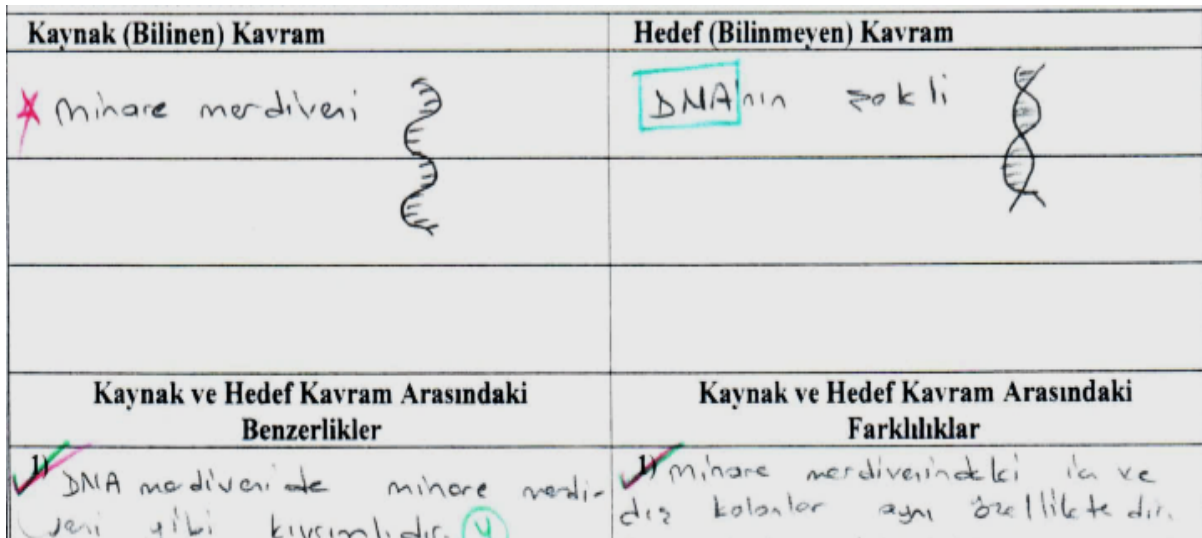 Kaynak (Bilinen) Kavram
Hedef (Bilinmeyen) Kavram
Minare merdiveni
DNA'nın şekli
Kaynak ve Hedef Kavram Arasındaki
Benzerlikler
Kaynak ve Hedef Kavram Arasındaki
Farklılıklar
1) DNA merdiveni de minare merdi-
veni gibi kıvrımlıdır. y
1) Minare merdivenindeki iç ve
dış kolonlar aynı özelliktedir.